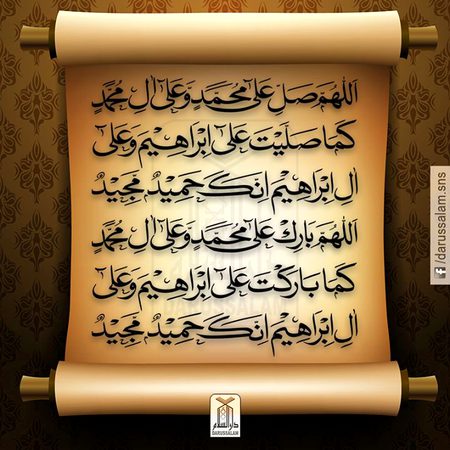 اللهم صل على محمد وعلى ال محمد
كما صليت على ابراهيم وعلى
ال ابراهيم انك حميد مجيد
اللهم بارك على محمد وعلى ال محمد
كما باركت على ابراهيم وعلى
ال ابراهيم انك حميد مجيد
/darussalam.sns
دار السلام
DARUSSALAM